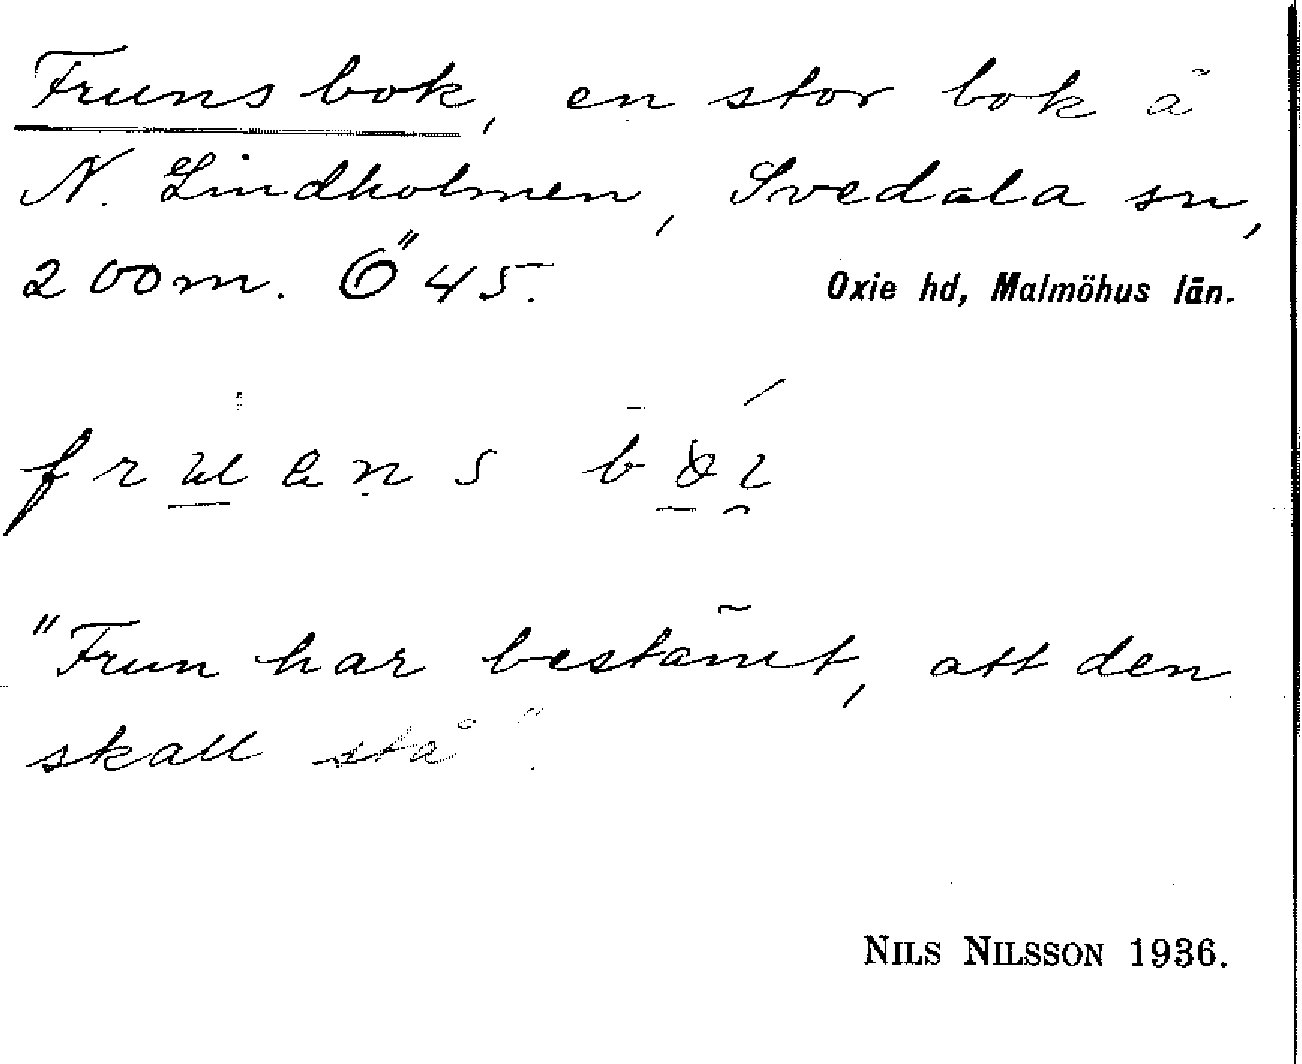 Fruns bok, en stor bok å
N. Lindholmen, Svedala sn,
200m. Ö 45. Oxie hd, Malmöhus län.
"Frun har bestämt, att den
skall stå".
NILS NILSSON 1936.